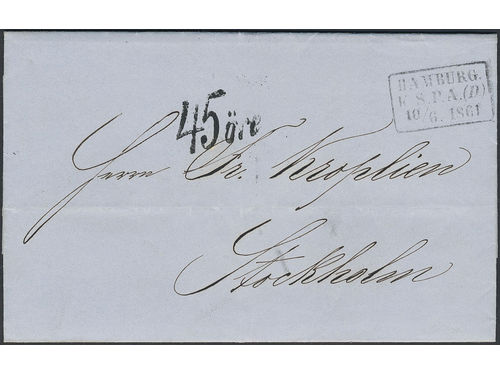 HAMBURG.
K.S.P.A.(D)
10/6. 1861
45 öre
Herrn Fr. Kroplien
Stockholm